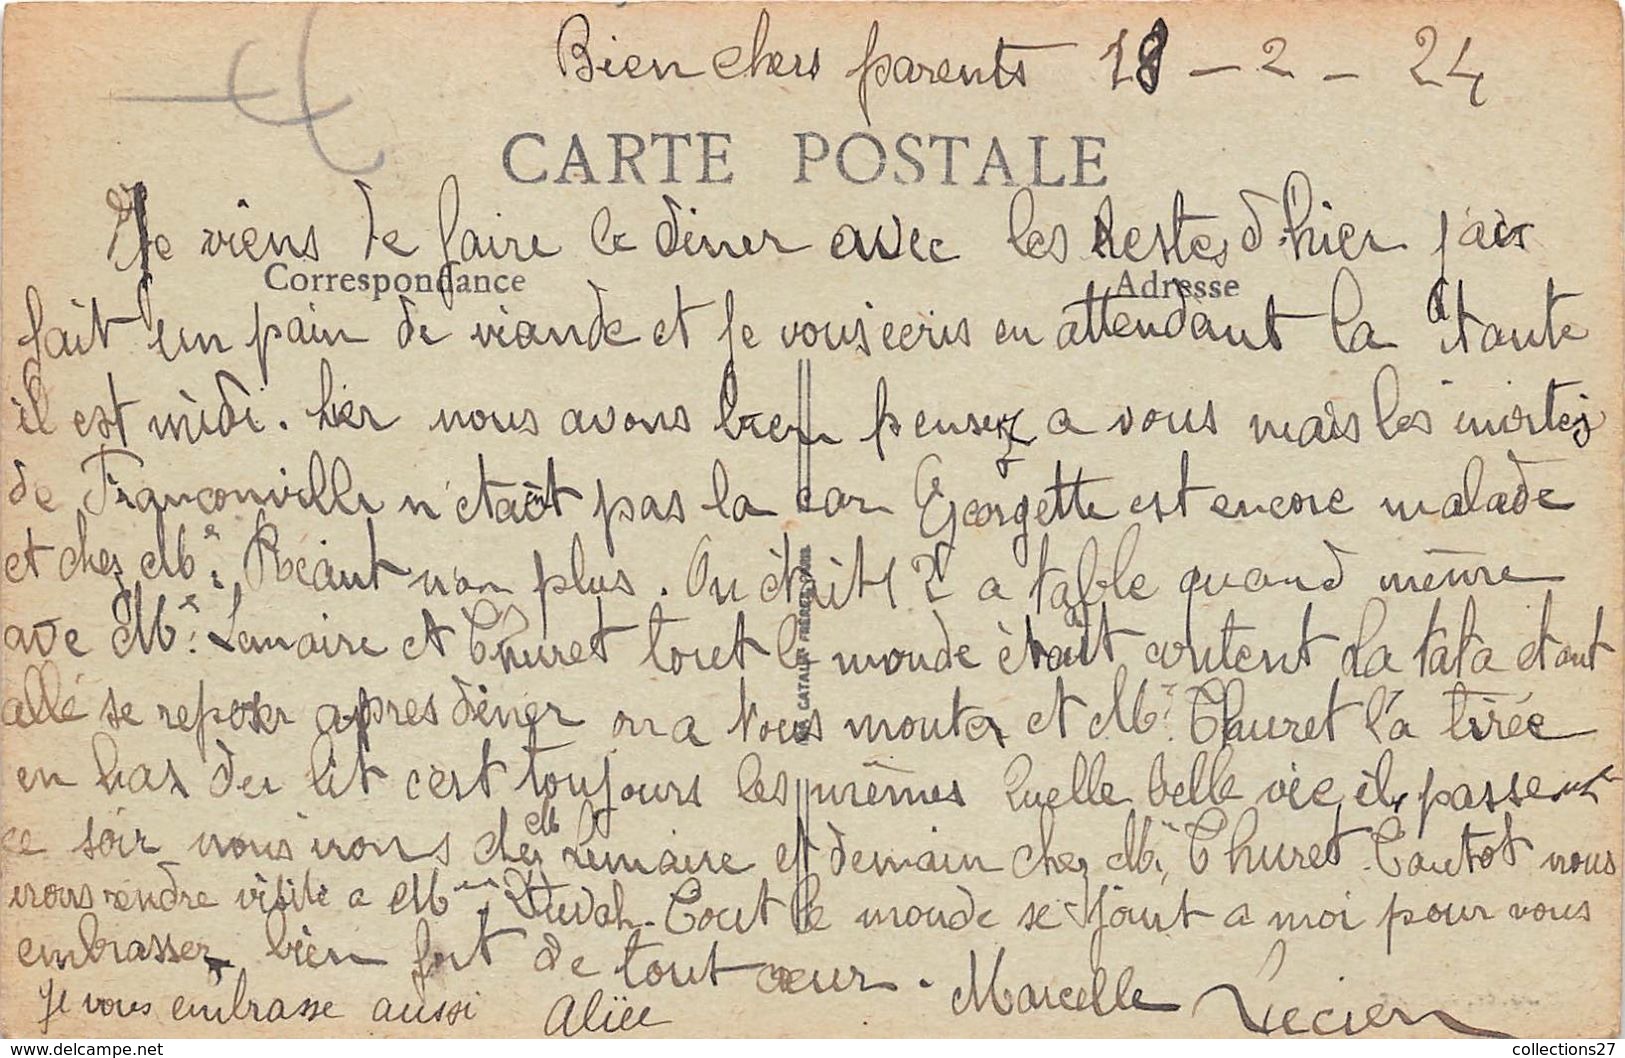 Bien chers parents 18 - 2 - 24
CARTE POSTALE
Je viens de faire le diner avec les restes d'hier j'ais
Correspondance
Adresse
fait un pain de viande et je vous ecris en attendant la tante
il est midi. hier nous avons bien pensez a vous mais les invités
de Franconville n'etait pas la car Georgette est encore malade
et chez Mr. Réaut non plus. On était 12 a table quand même
ave Mr. Lemaire et Thuret tout le monde était content La tata étant
allé se reposer apres diner on a tous monter et Mr. Thuret l'a tirée
en bas du lit c'est toujours les mêmes Quelle belle vie il passent
ce soir nous irons chez M Lemaire et demain chez Mr. Thuret. Tantot nous
irons rendre visite a Mme Duval. Tout le monde se joint a moi pour vous
embrasser bien fort de tout cœur. Marcelle Lucien
Je vous embrasse aussi Aliëe
CATALA FRERES
collections27